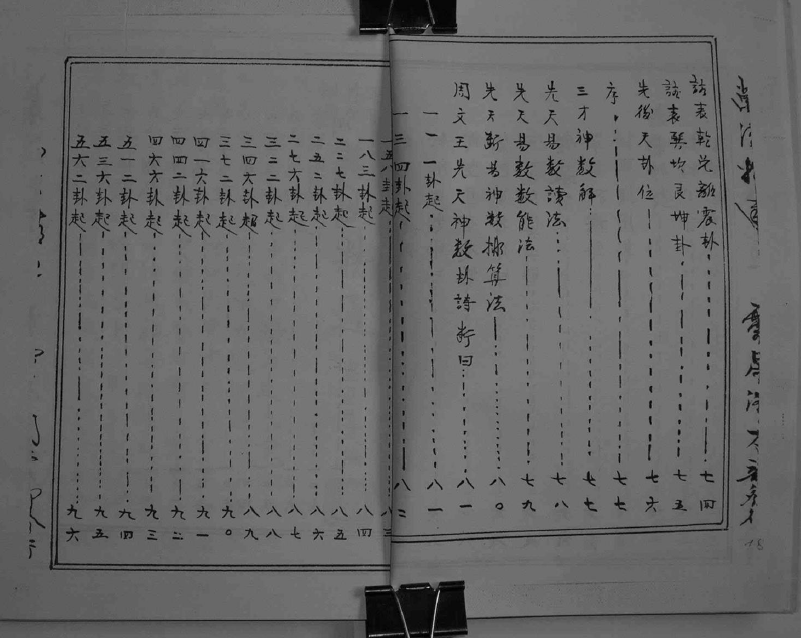 訣表乾兌離震卦 七四
訣表巽坎艮坤卦 七五
先後天卦位 七六
序 七七
三才神数解 七七
先天易数讀法 七八
先天易数数能法 七九
先天斷易神数排算法 八〇
周文王先天神数卦詩斷曰 八一
一一一卦起 八一
一三四卦起 八二
一五八卦起 八三
一八三卦起 八四
二二七卦起 八五
二五二卦起 八六
二七六卦起 八七
三二二卦起 八八
三四六卦起 八九
三七二卦起 九〇
四一六卦起 九一
四四二卦起 九二
四六六卦起 九三
五一二卦起 九四
五三六卦起 九五
五六二卦起 九六